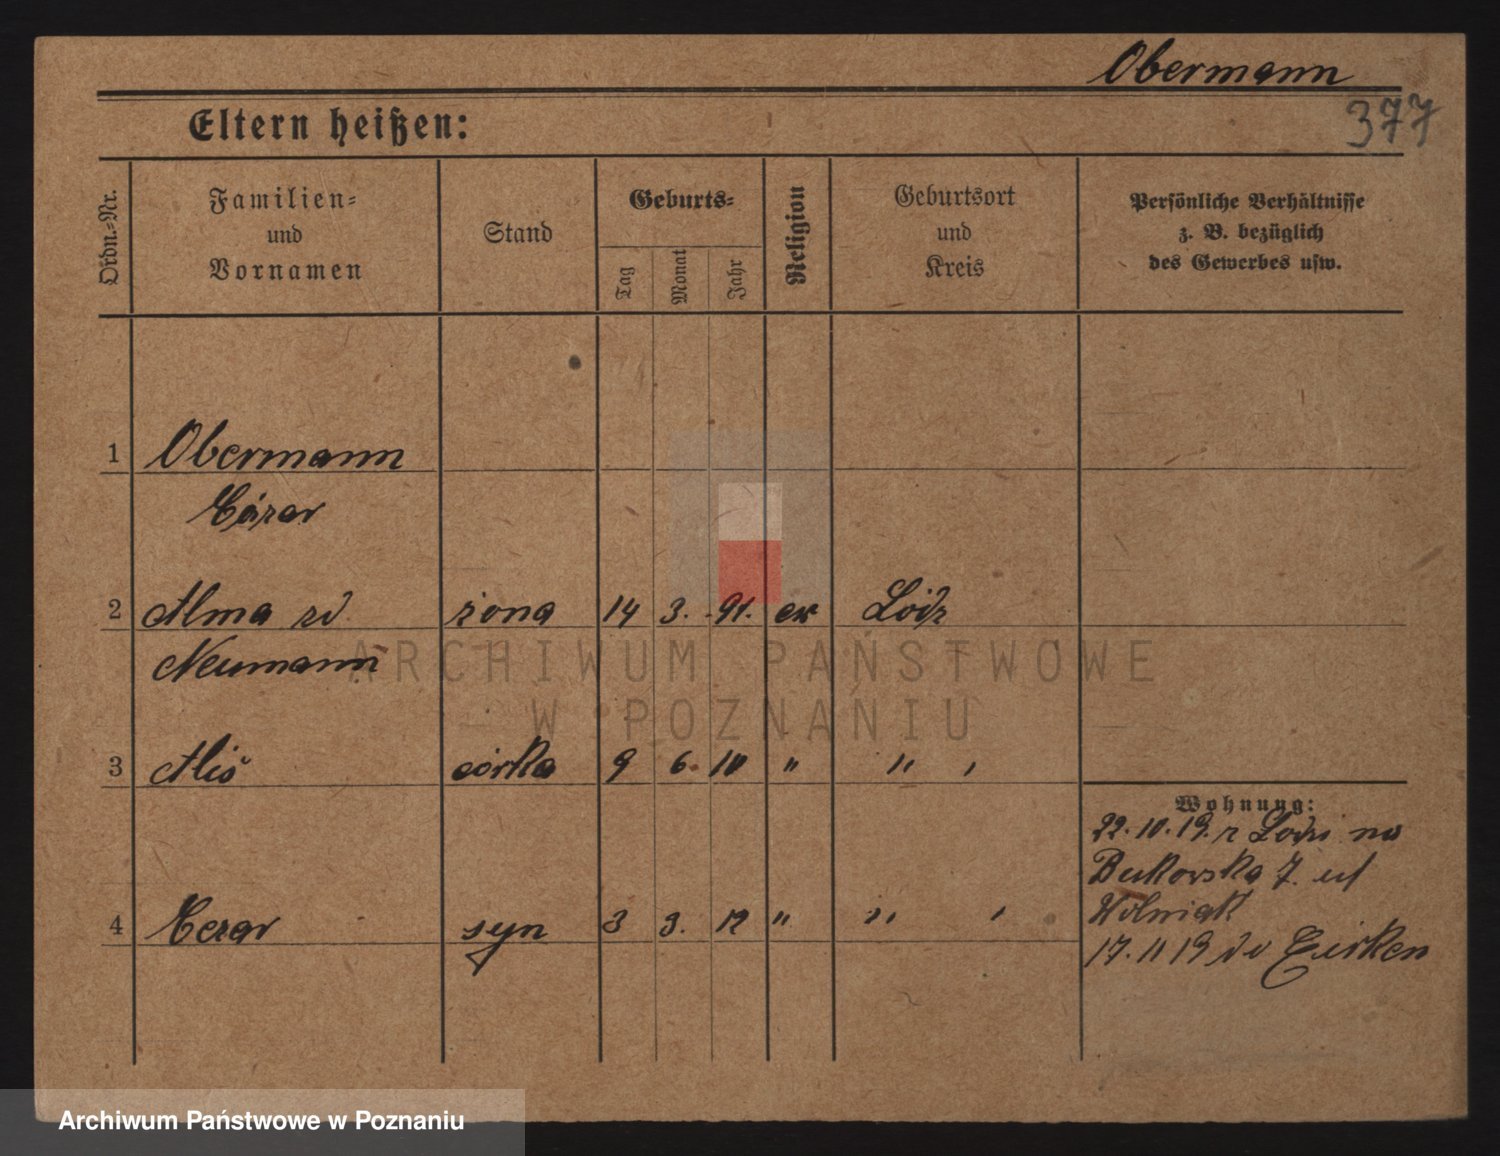 Obermann
377
Eltern heißen:
Ordn.-Nr.
Familien-
und
Vornamen
Stand
Geburts-
Tag
Monat
Jahr
Religion
Geburtsort
und
Kreis
Persönliche Verhältnisse
z. B. bezüglich
des Gewerbes usw.
1 Obermann
Cäzar
2 Alma zd żona 14 3. 91. ew Łódź
Neumann
ARCHIWUM PAŃSTWOWE
W POZNANIU
3 Alis córka 9 6. 10 " " "
Wohnung:
22.10.19. z Łodzi na
Bukowska 7. u/
Wolniak
4 Cezar syn 3 3. 12 " " "
17.11 19 do
Archiwum Państwowe w Poznaniu